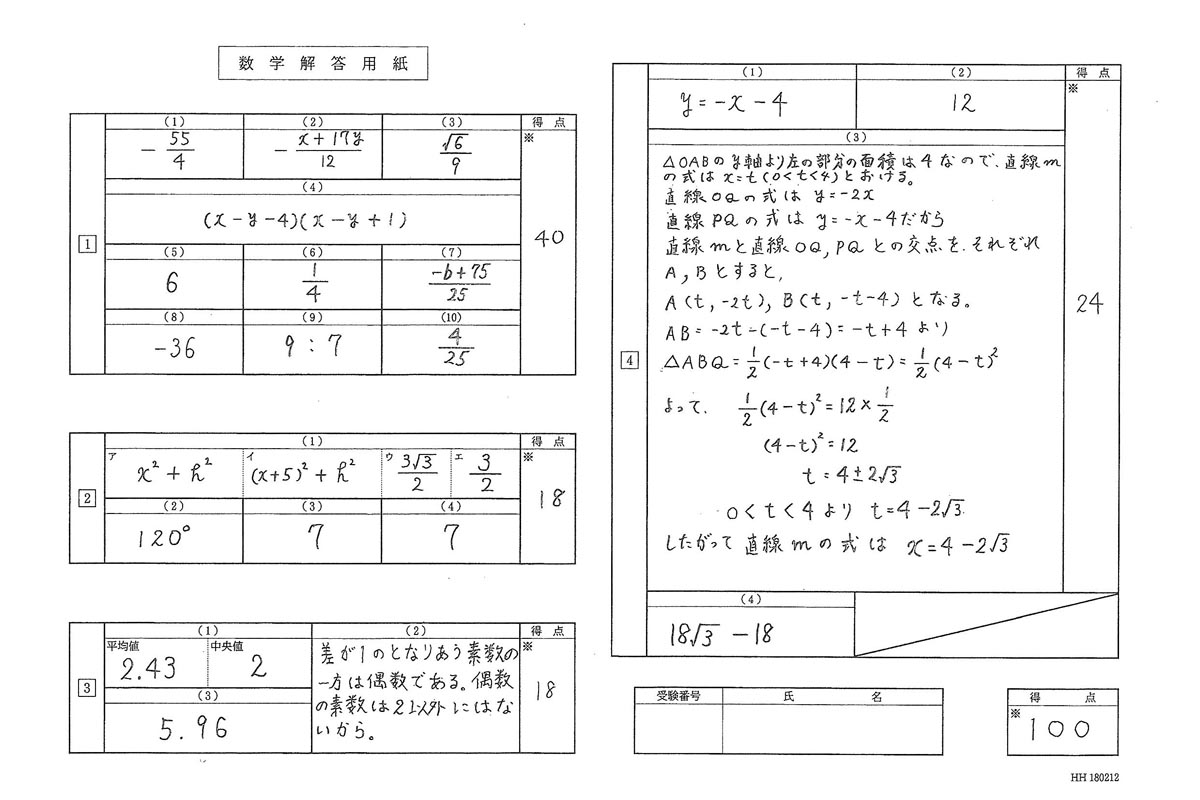 数学解答用紙
1
(1) (2) (3) 得点
-55/4 -x+17y/12 √6/9 ※
(4)
(x-y-4)(x-y+1)
40
(5) (6) (7)
6 1/4 -b+75/25
(8) (9) (10)
-36 9:7 4/25
2
(1) 得点
ア x²+h² イ (x+5)²+h² ウ 3√3/2 エ 3/2 ※
(2) (3) (4)
120° 7 7
18
3
(1) (2) 得点
平均値 2.43 中央値 2 ※
(3)
5.96
差が1のとなりあう素数の
一方は偶数である。偶数
の素数は2以外にはな
いから。
18
4
(1) (2) 得点
y=-x-4 12 ※
(3)
△OABのy軸より左の部分の面積は4なので、直線m
の式はx=t(0<t<4)とおける。
直線OQの式は y=-2x
直線PQの式は y=-x-4だから
直線mと直線OQ,PQとの交点を、それぞれ
A,Bとすると、
A(t,-2t),B(t,-t-4)となる。
AB=-2t-(-t-4)=-t+4より
△ABQ=1/2(-t+4)(4-t)=1/2(4-t)²
よって、 1/2(4-t)²=12×1/2
(4-t)²=12
t=4±2√3
0<t<4より t=4-2√3.
したがって 直線mの式は x=4-2√3
24
(4)
18√3-18
受験番号 氏名 得点
※
100
HH 180212